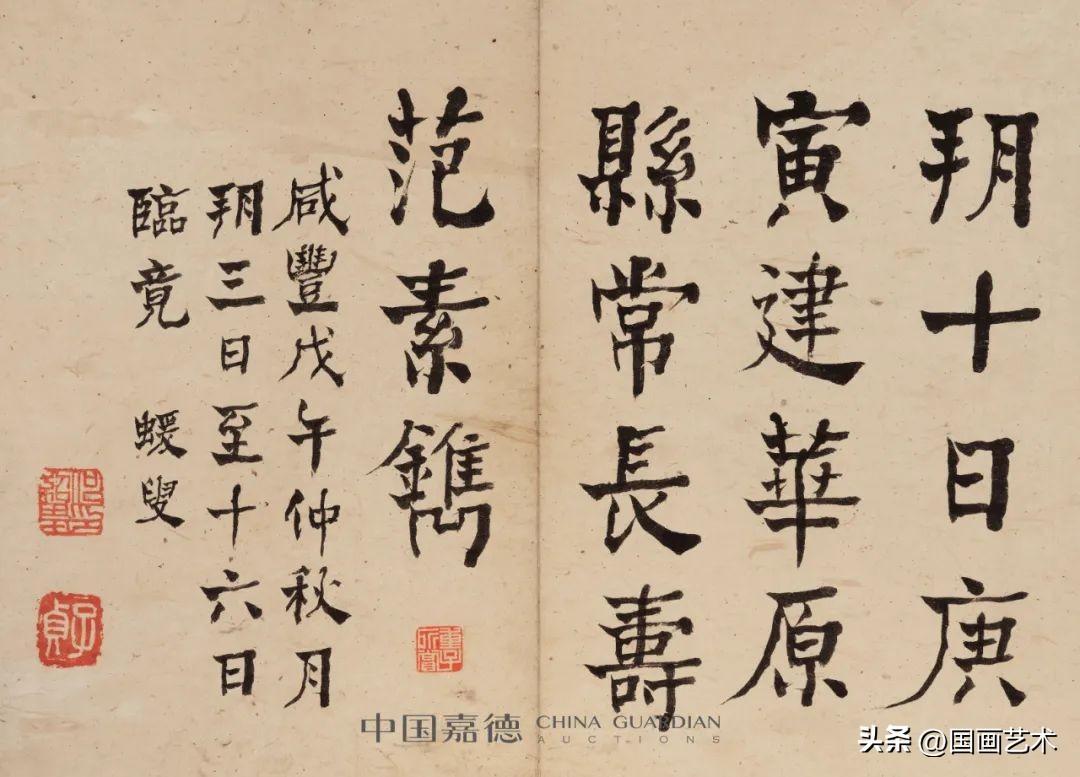 朔十日庚
寅建華原
縣常長壽
范素鐫
咸豐戊午仲秋月
朔三日至十六日
臨竟 蝯叟
子貞
中国嘉德 CHINA GUARDIAN
AUCTIONS
头条 @国画艺术